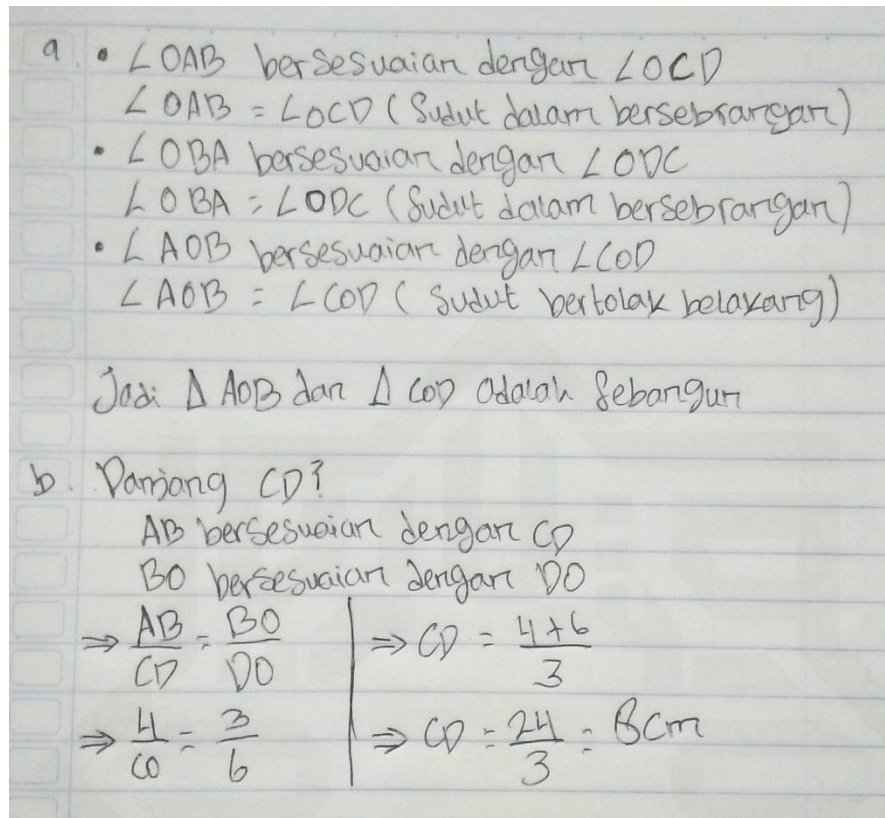 a. • ∠OAB bersesuaian dengan ∠OCD
∠OAB = ∠OCD (Sudut dalam bersebrangan)
• ∠OBA bersesuaian dengan ∠ODC
∠OBA = ∠ODC (Sudut dalam bersebrangan)
• ∠AOB bersesuaian dengan ∠COD
∠AOB = ∠COD (Sudut bertolak belakang)
Jadi Δ AOB dan Δ COD adalah Sebangun
b. Panjang CD?
AB bersesuaian dengan CD
BO bersesuaian dengan DO
⇒ AB/CD = BO/DO
⇒ 4/CD = 3/6
⇒ CD = 4+6/3
⇒ CD = 24/3 = 8cm